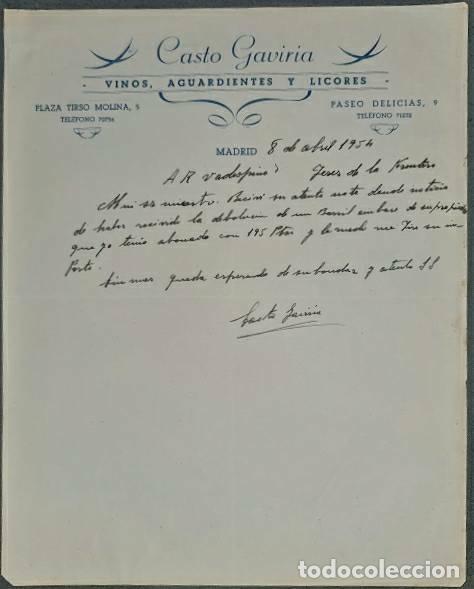 Casto Gaviria
- VINOS, AGUARDIENTES Y LICORES -
PLAZA TIRSO MOLINA, 5
TELÉFONO 70754
PASEO DELICIAS, 9
TELÉFONO 71272
MADRID 8 de abril 1954
A R Valdespino Jerez de la Frontera
Muy sr nuestro. Recivi su atenta note dando noticia
de haber recivido la debolucion de un Barril embase de su propiedad
que yo tenia abonado con 195 Ptas y le
Porte.
Sin mas queda esperando de su bondaz y atento SS
Casto Gaviria
todocoleccion
todocoleccion.net